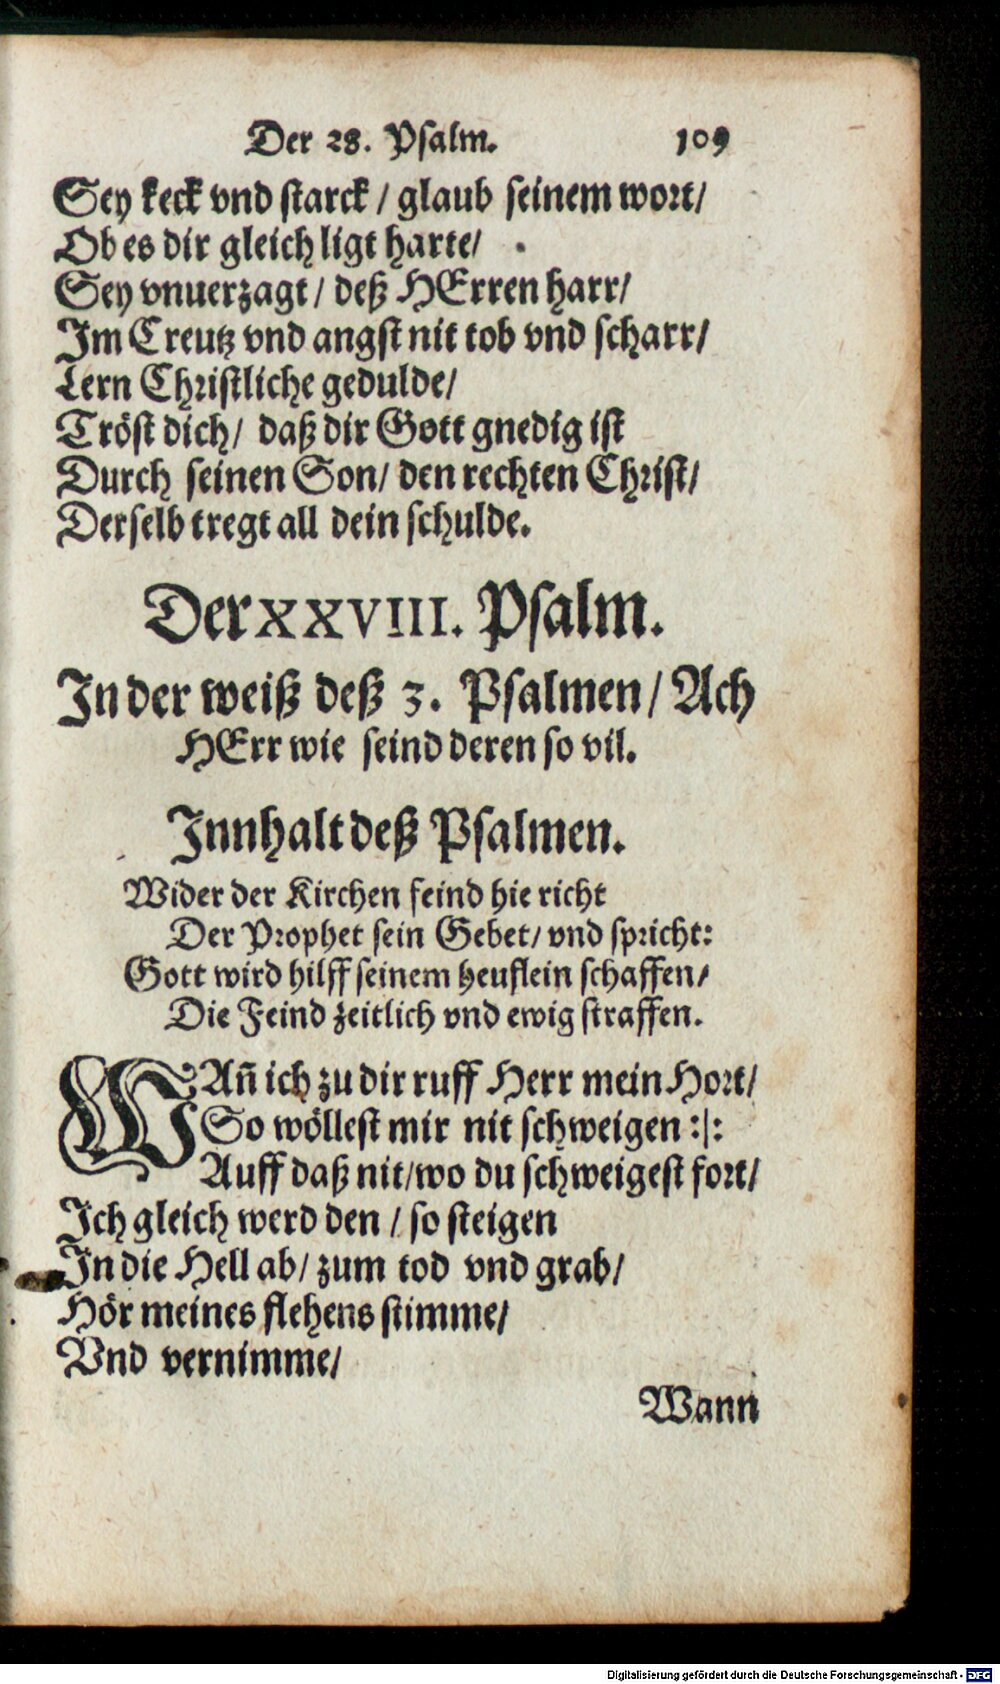 Der 28. Psalm. 109
Sey keck vnd starck / glaub seinem wort/
Ob es dir gleich ligt harte/
Sey vnuerzagt / deß HErren harr/
Im Creutz vnd angst nit tob vnd scharr/
Lern Christliche gedulde/
Tröst dich/ daß dir Gott gnedig ist
Durch seinen Son/ den rechten Christ/
Derselb tregt all dein schulde.
Der XXVIII. Psalm.
In der weiß deß 3. Psalmen / Ach
HErr wie seind deren so vil.
Innhalt deß Psalmen.
Wider der Kirchen feind hie richt
Der Prophet sein Gebet/ vnd spricht:
Gott wird hilff seinem heuflein schaffen/
Die Feind zeitlich vnd ewig straffen.
WAn̄ ich zu dir ruff Herr mein Hort/
So wöllest mir nit schweigen :|:
Auff daß nit/wo du schweigest fort/
Ich gleich werd den / so steigen
In die Hell ab/ zum tod vnd grab/
Hör meines flehens stimme/
Vnd vernimme/
Wann
Digitalisierung gefördert durch die Deutsche Forschungsgemeinschaft - DFG